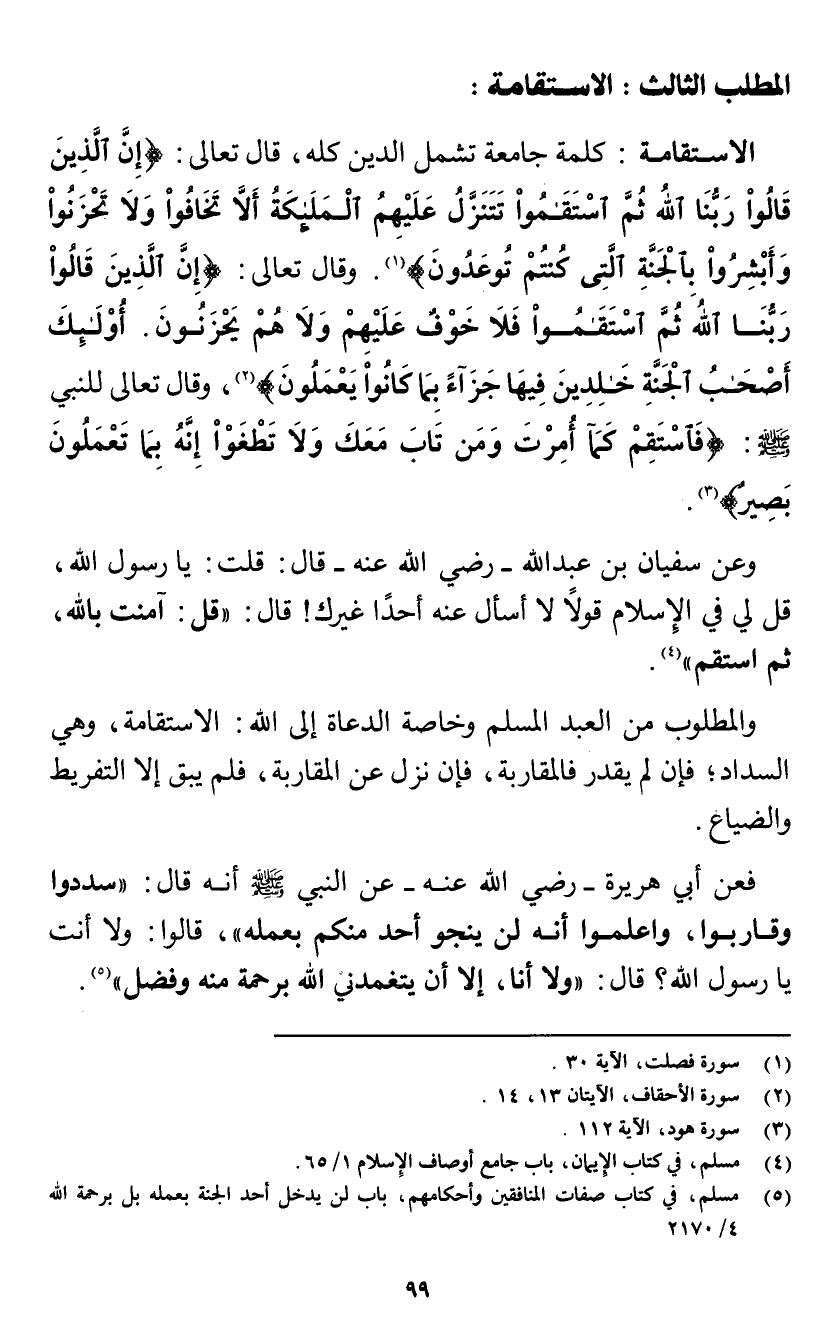 المطلب الثالث : الاستقامة :
الاستقامة : كلمة جامعة تشمل الدين كله، قال تعالى: ﴿إِنَّ ٱلَّذِينَ
قَالُواْ رَبُّنَا ٱللَّهُ ثُمَّ ٱسْتَقَـٰمُواْ تَتَنَزَّلُ عَلَيْهِمُ ٱلْمَلَـٰٓئِكَةُ أَلَّا تَخَافُواْ وَلَا تَحْزَنُواْ
وَأَبْشِرُواْ بِٱلْجَنَّةِ ٱلَّتِى كُنتُمْ تُوعَدُونَ﴾(١). وقال تعالى: ﴿إِنَّ ٱلَّذِينَ قَالُواْ
رَبُّنَا ٱللَّهُ ثُمَّ ٱسْتَقَـٰمُواْ فَلَا خَوْفٌ عَلَيْهِمْ وَلَا هُمْ يَحْزَنُونَ. أُوْلَـٰٓئِكَ
أَصْحَـٰبُ ٱلْجَنَّةِ خَـٰلِدِينَ فِيهَا جَزَآءً بِمَا كَانُواْ يَعْمَلُونَ﴾(٢)، وقال تعالى للنبي
ﷺ: ﴿فَٱسْتَقِمْ كَمَآ أُمِرْتَ وَمَن تَابَ مَعَكَ وَلَا تَطْغَوْاْ إِنَّهُ بِمَا تَعْمَلُونَ
بَصِيرٌ﴾(٣).
وعن سفيان بن عبدالله ـ رضي الله عنه ـ قال: قلت: يا رسول الله،
قل لي في الإسلام قولًا لا أسأل عنه أحدًا غيرك! قال: «قل: آمنت بالله،
ثم استقم»(٤).
والمطلوب من العبد المسلم وخاصة الدعاة إلى الله: الاستقامة، وهي
السداد؛ فإن لم يقدر فالمقاربة، فإن نزل عن المقاربة، فلم يبق إلا التفريط
والضياع.
فعن أبي هريرة ـ رضي الله عنه ـ عن النبي ﷺ أنه قال: «سددوا
وقاربوا، واعلموا أنه لن ينجو أحد منكم بعمله»، قالوا: ولا أنت
يا رسول الله؟ قال: «ولا أنا، إلا أن يتغمدني الله برحمة منه وفضل»(٥).
(١) سورة فصلت، الآية ٣٠ .
(٢) سورة الأحقاف، الآيتان ١٣، ١٤ .
(٣) سورة هود، الآية ١١٢ .
(٤) مسلم، في كتاب الإيمان، باب جامع أوصاف الإسلام ١/ ٦٥.
(٥) مسلم، في كتاب صفات المنافقين وأحكامهم، باب لن يدخل أحد الجنة بعمله بل برحمة الله
٤/ ٢١٧٠
٩٩